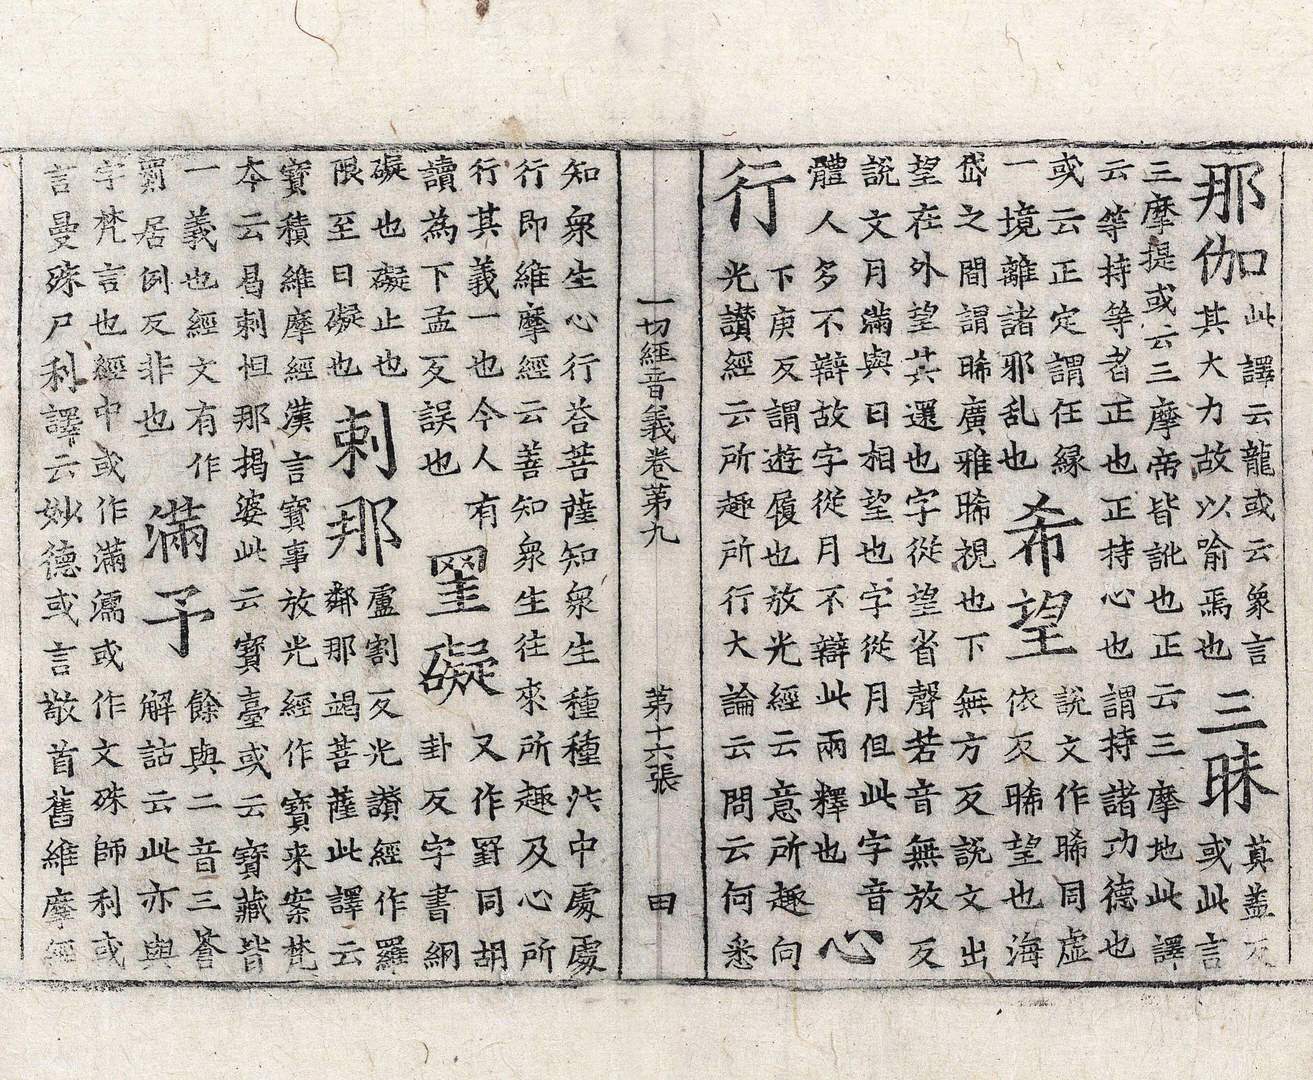 那伽
此譯云龍或云象言
其大力故以喻焉也
三昧
莫盖反
或此言
三摩提或云三摩帝皆訛也正云三摩地此譯
云等持等者正也正持心也謂持諸功德也
或云正定謂任緣
一境離諸邪乱也
希望
說文作睎同虛
依反睎望也海
岱之間謂睎廣雅睎視也下無方反說文出
望在外望其還也字從望省聲若音無放反
說文月滿與日相望也字從月但此字音
體人多不辯故字從月不辯此兩釋也
心
行
下庚反謂遊履也放光經云意所趣向
光讃經云所趣所行大論云問云何悉
一切經音義卷第九
第十六張
田
知衆生心行荅菩薩知衆生種種法中處處
行即維摩經云善知衆生往來所趣及心所
行其義一也今人有
讀為下孟反誤也
罣礙
又作罫同胡
卦反字書網
礙也礙止也
限至曰礙也
剌那
盧割反光讃經作羅
鄰那竭菩薩此譯云
寶積維摩經漢言寶事放光經作寶來案梵
夲云曷剌怛那揭婆此云寶臺或云寶藏皆
一義也經文有作
罽居例反非也
滿予
餘與二音三蒼
解詁云此亦與
字梵言也經中或作滿濡或作文殊師利或
言曼殊尸利譯云妙德或言敬首舊維摩經